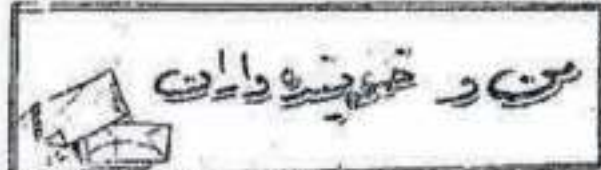 من و خوێندەواران